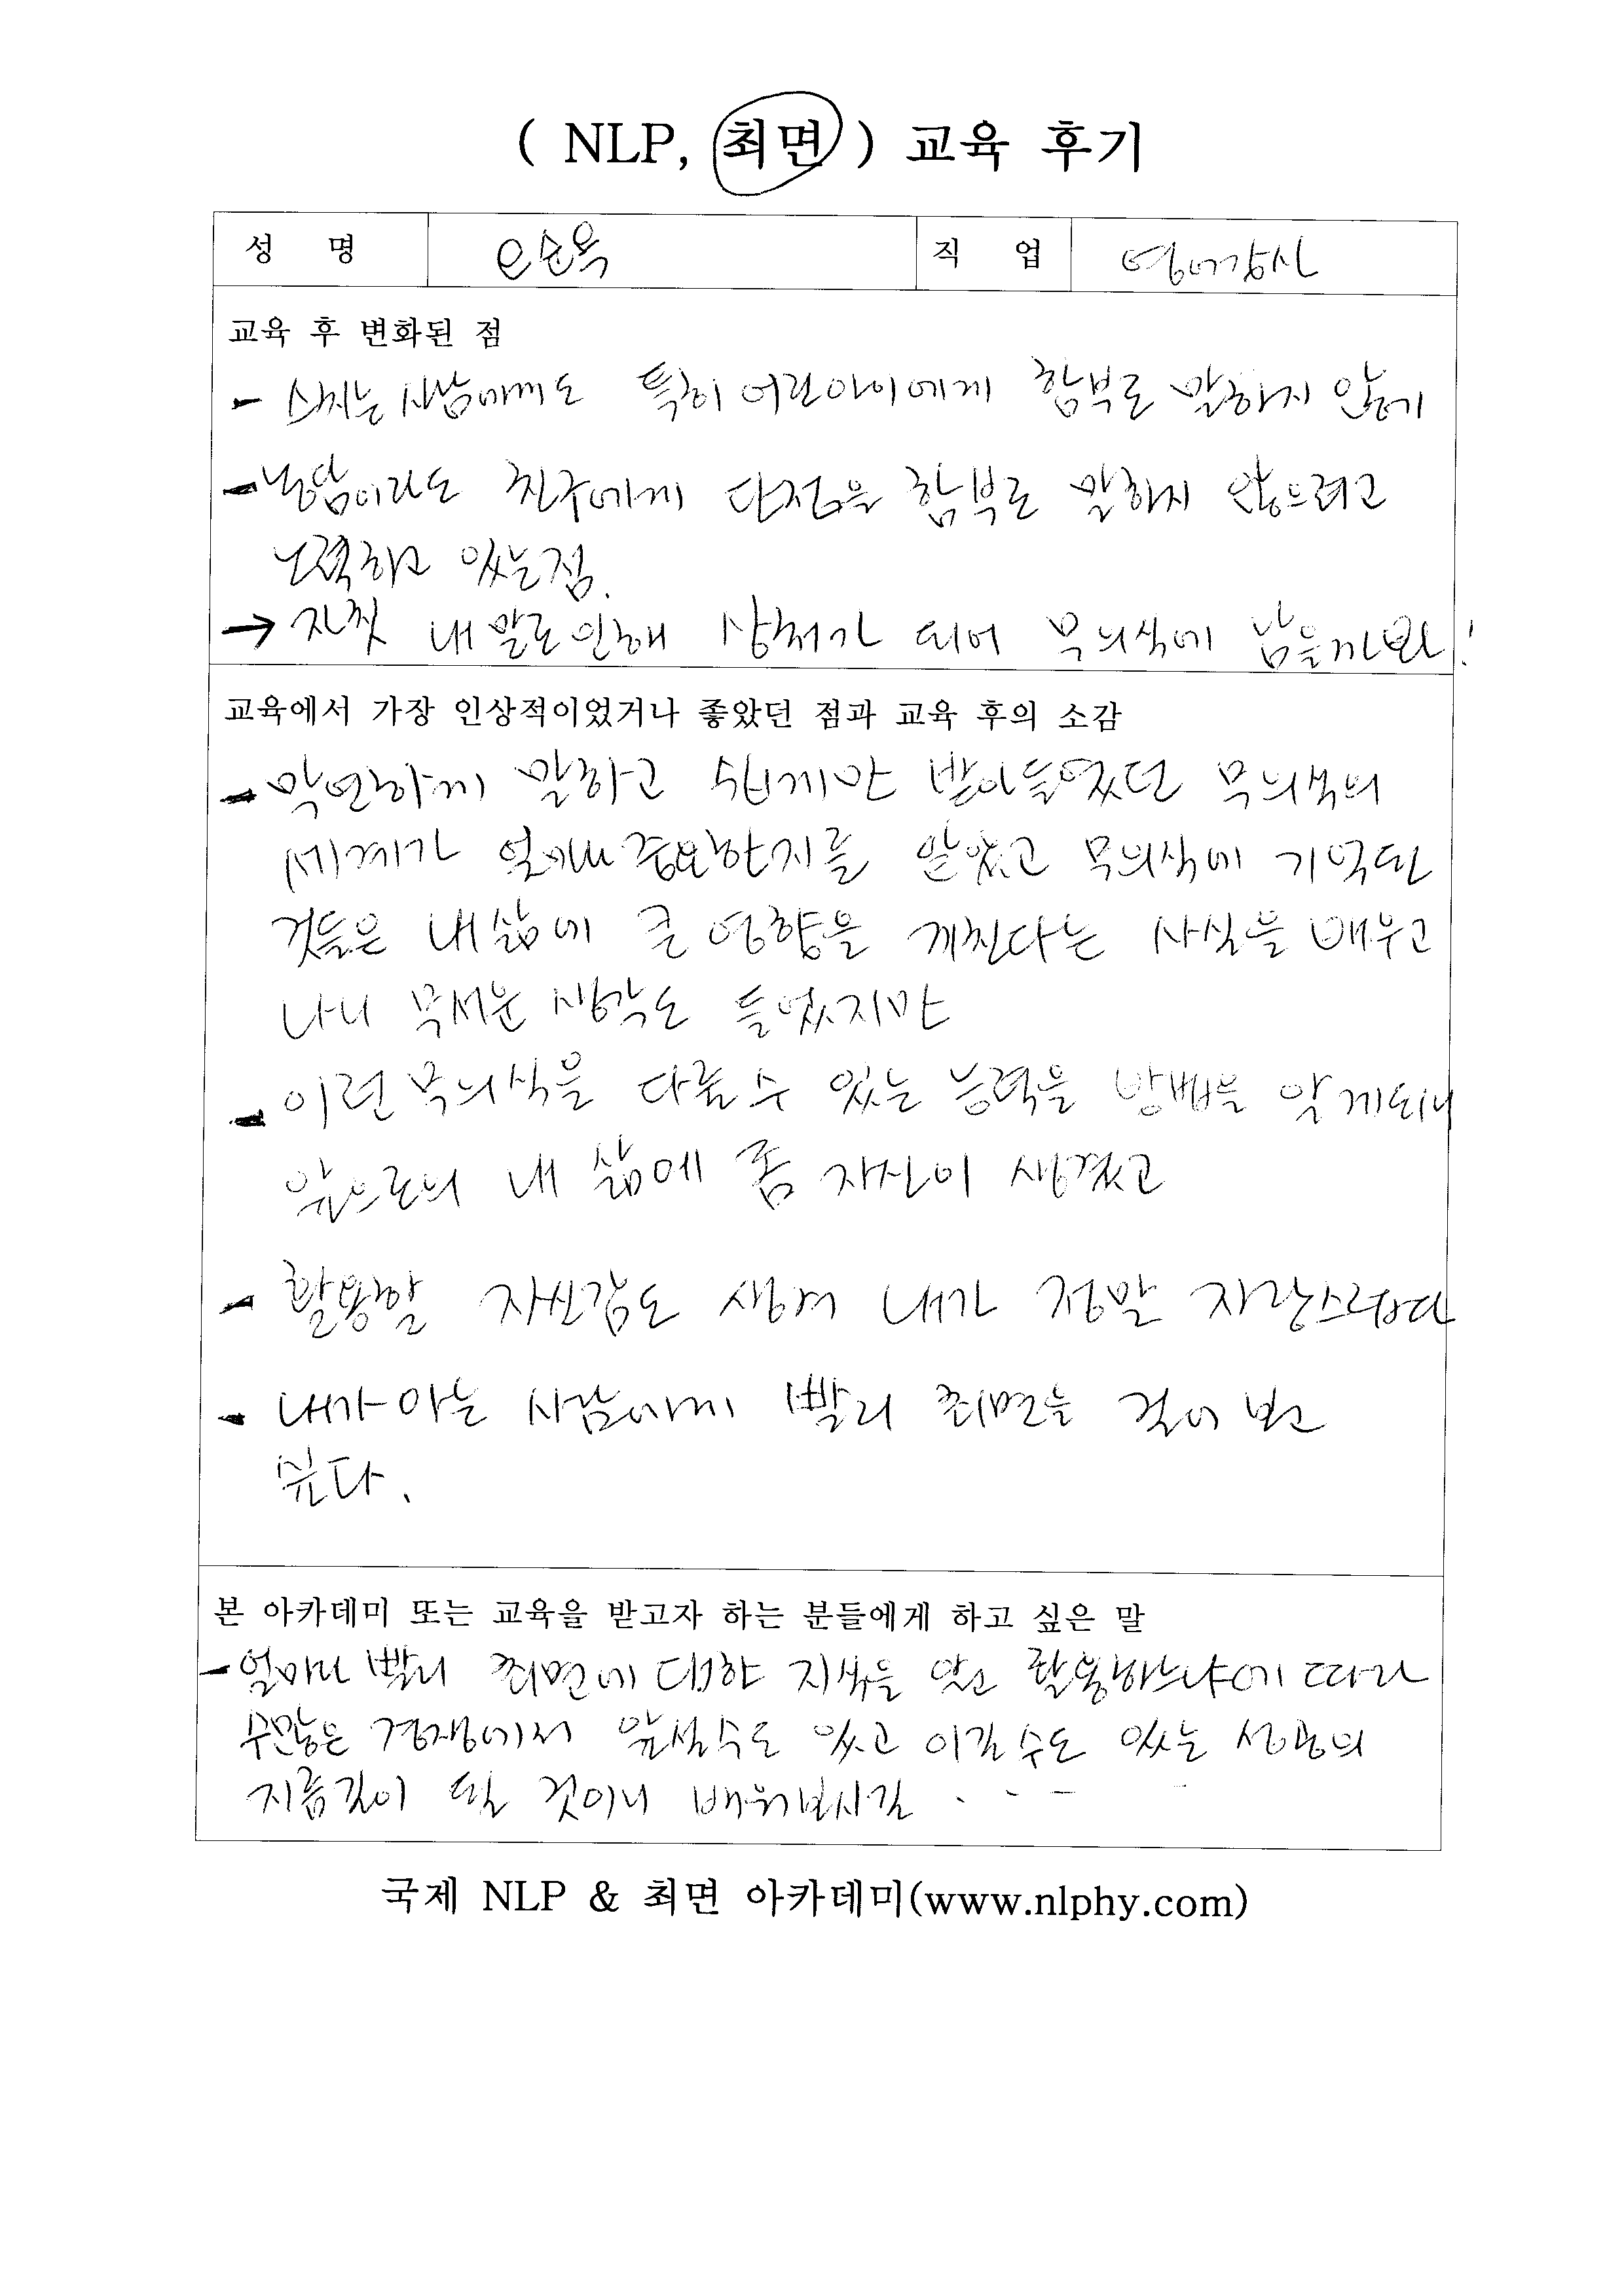 ( NLP, 최면 ) 교육 후기
성 명 이순옥 직 업 영어강사
교육 후 변화된 점
- 스치는 사람에게도 특히 어린아이에게 함부로 말하지 않게
- 농담이라도 친구에게 단점을 함부로 말하지 않으려고
노력하고 있는점.
→ 자칫 내 말로 인해 상처가 되어 무의식에 남을까봐!
교육에서 가장 인상적이었거나 좋았던 점과 교육 후의 소감
- 막연하게 말하고 쉽게만 받아들였던 무의식의
세계가 얼마나 중요한지를 알았고 무의식에 기억된
것들은 내 삶에 큰 영향을 끼친다는 사실을 배우고
나니 무서운 생각도 들었지만
- 이런 무의식을 다룰 수 있는 능력을 방법을 알게되니
앞으로의 내 삶에 좀 자신이 생겼고
- 활용할 자신감도 생겨 내가 정말 자랑스럽다
- 내가 아는 사람에게 빨리 최면을 걸어 보고
싶다.
본 아카데미 또는 교육을 받고자 하는 분들에게 하고 싶은 말
- 얼마나 빨리 최면에 대한 지식을 알고 활용하느냐에 따라
수많은 경쟁에서 앞설수도 있고 이길 수도 있는 성공의
지름길이 될 것이니 배워보시길 ----
국제 NLP & 최면 아카데미(www.nlphy.com)